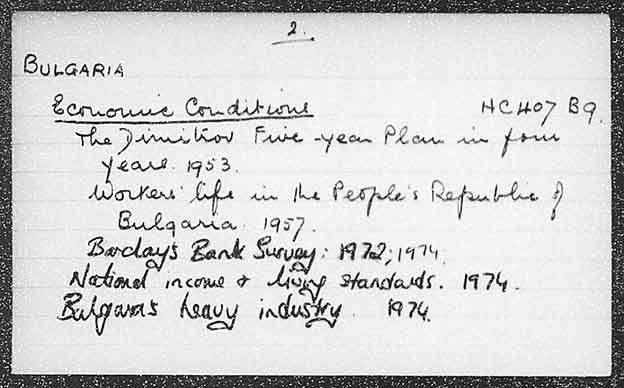 2.
BULGARIA
Economic Conditions HC407 B9.
The Dimitrov Five-year Plan in four
years. 1953.
Workers' life in the People's Republic of
Bulgaria. 1957.
Barclays Bank Survey: 1972; 1974.
National income & living standards. 1974.
Bulgaria's heavy industry. 1974.